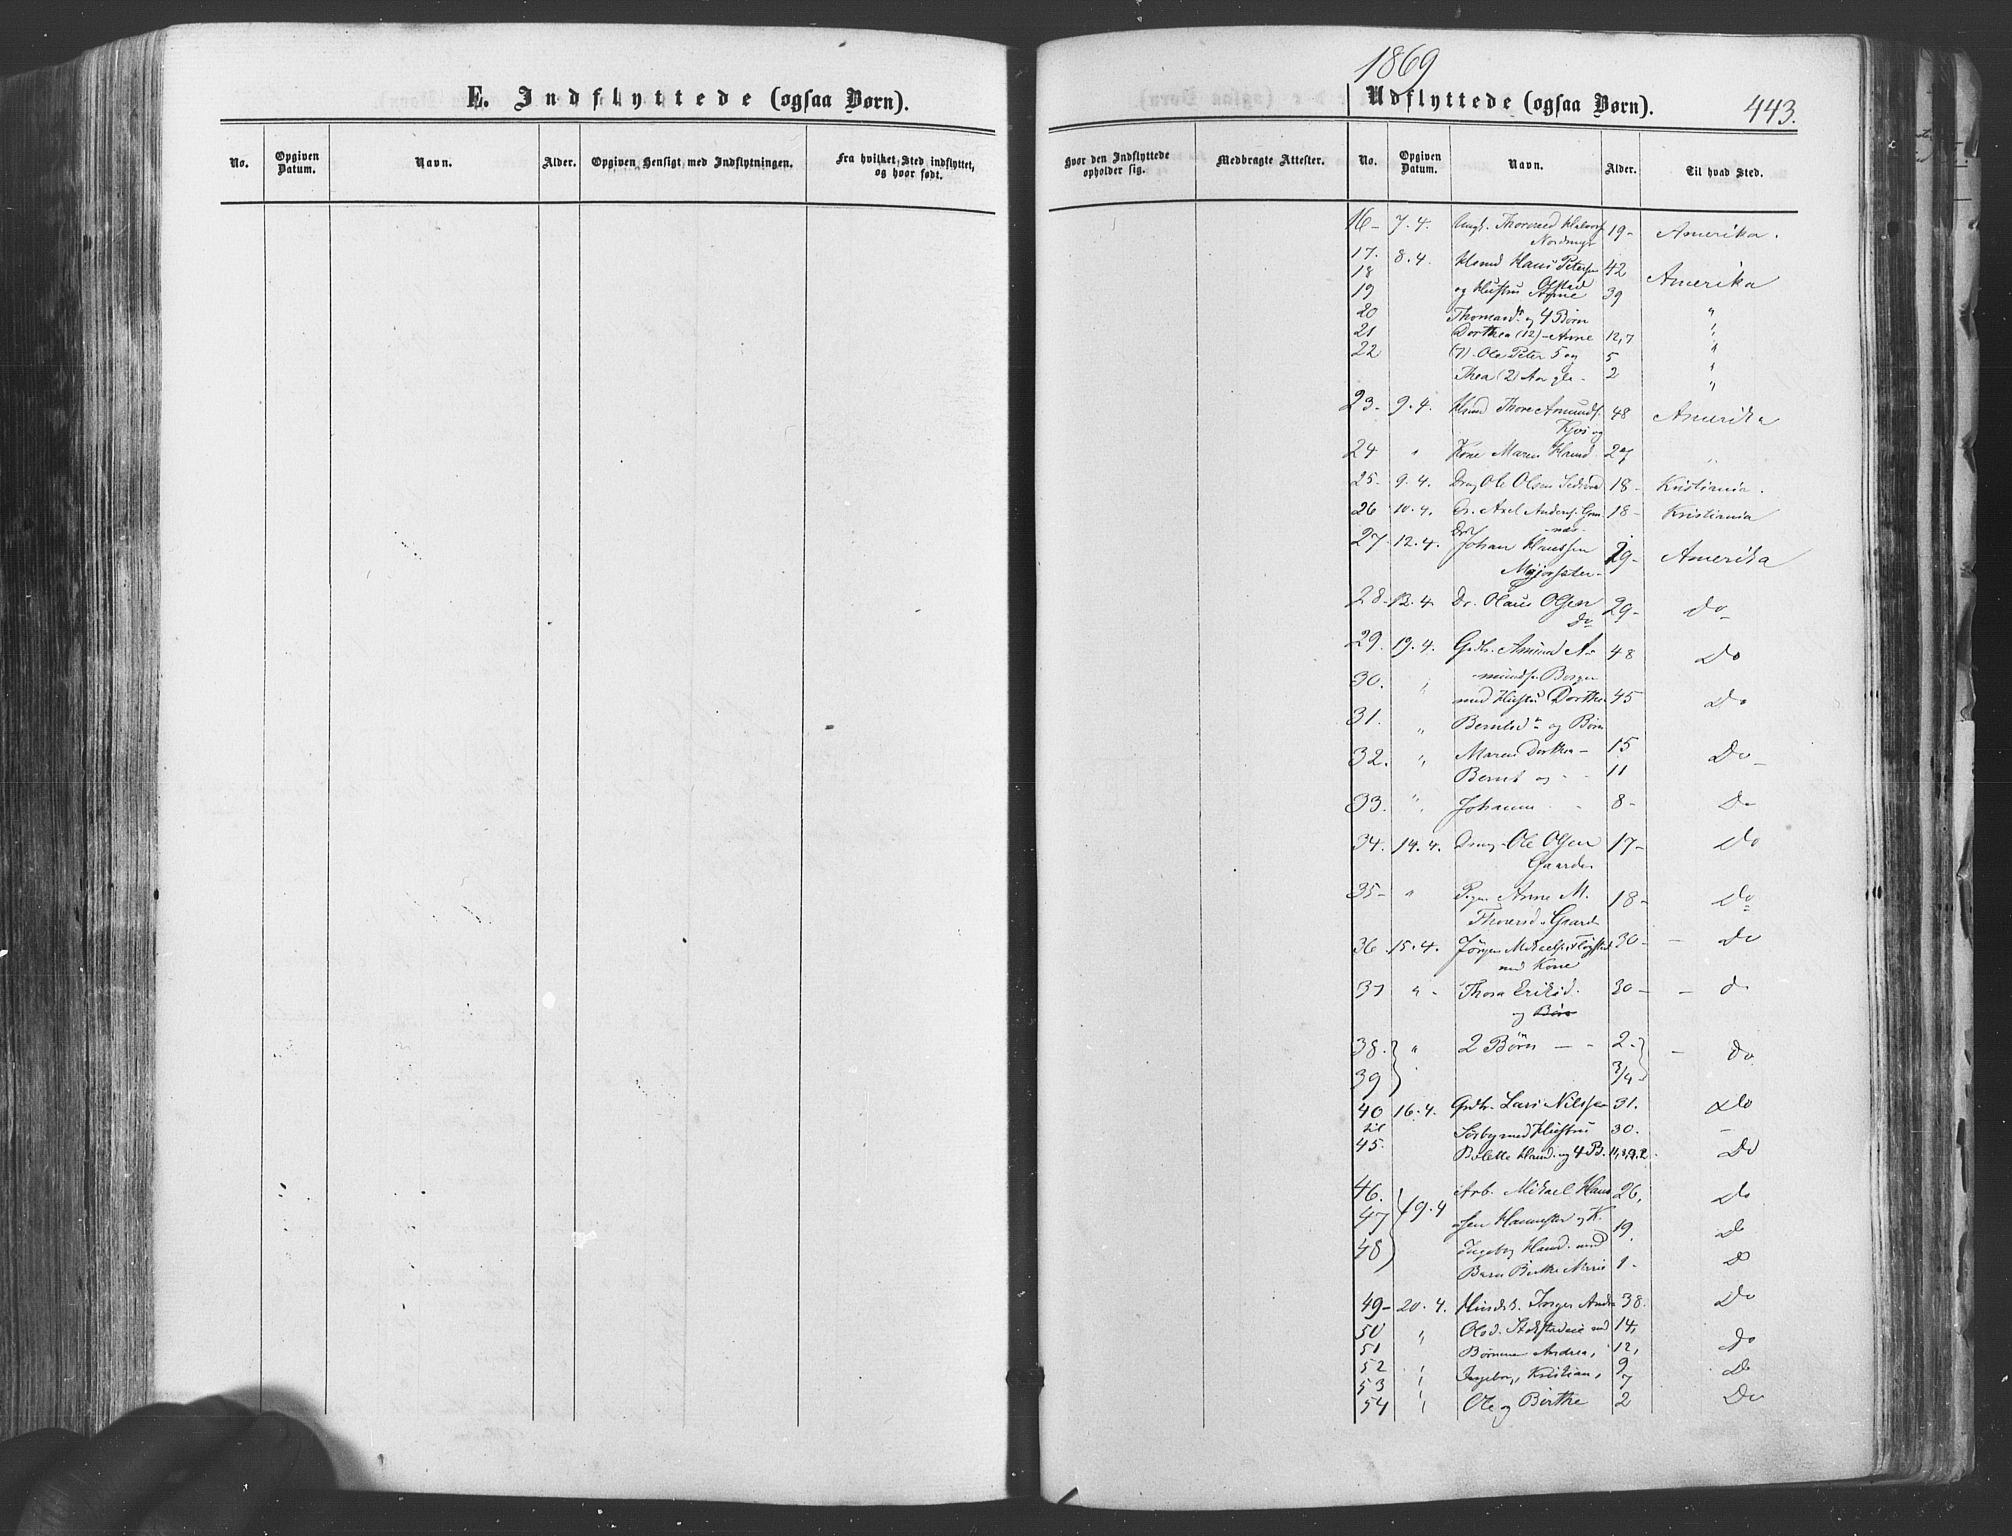 1869
E. Indflyttede (ogsaa Børn).
Udflyttede (ogsaa Børn).
443.
No.
Opgiven Datum.
Navn.
Alder.
Opgiven Hensigt med Indflytningen.
Fra hvilket Sted indflyttet, og hvor født.
Hvor den Indflyttede opholder sig.
Medbragte Attester.
No.
Opgiven Datum.
Navn.
Alder.
Til hvad Sted.
16- 7.4. Ungk. Thorvned Halvors 19- Amerika.
17. 8.4. Hsmd Hans Petersen 42 Amerika
18 Olstad
19 og Hustru Anne 39
20 Thomasd. og 4 Børn "
21 Dorthea (12) - Anne 12,7 "
22 (7). Ole Peter 5 og 5 "
Thea (2) Aar gle- 2 "
"
23- 9.4. Hsmd Thore Amunds. 48 Amerika
og
24 " Kone Maren Hansd. 27 "
25- 9.4. Dreng Ole Olsen 18- Kristiania.
26 10.4. Dr. Axel Anders. 18- Kristiania
27- 12.4. Johan Hanssen 29- Amerika
28- 13.4 Dr. Olaus Olsen 29- do
Do
29. 13.4. Grdbr. Amund A- 48 Do
30. " mundsen Berger
med Hustru Dorthea 45 Do
31. " Berntsd. og Børn
32. " Maren Dorthea - 15 Do
Bernt og - - 11
33. " Johanne - 8- Do
34. 14.4. Dreng Ole Olsen 17- Do
Gaarder
35- " Pigen Anne M. 18- Do
Thoresd. Gaarder
36 15.4. Jørgen Mikaels. 30- - Do
med Kone
37 " - Thora Eriksd. 30- - do
og Børn
38. " 2 Børn - - 2. - Do
39 3/4-
40 16.4. Grdbr. Lars Nilssen 31. Do
til Sørby med Hustru 30. -
45. Bolette Hansd. og 4 B. Do
46. 19.4 Arb. Mikael Hans 26, Do
47 og K. 19. Do
48 Ingeborg Hansd. med
Barn Birthe Marie 1- Do
49- 20.4. Inger Andrea 38. Do
50 " Olsd. med 14,
51 Børnene Andrea, 12, Do
52 " Ingeborg, Kristian, 9 Do
53 " 7
54 " Ole og Birthe 2 Do